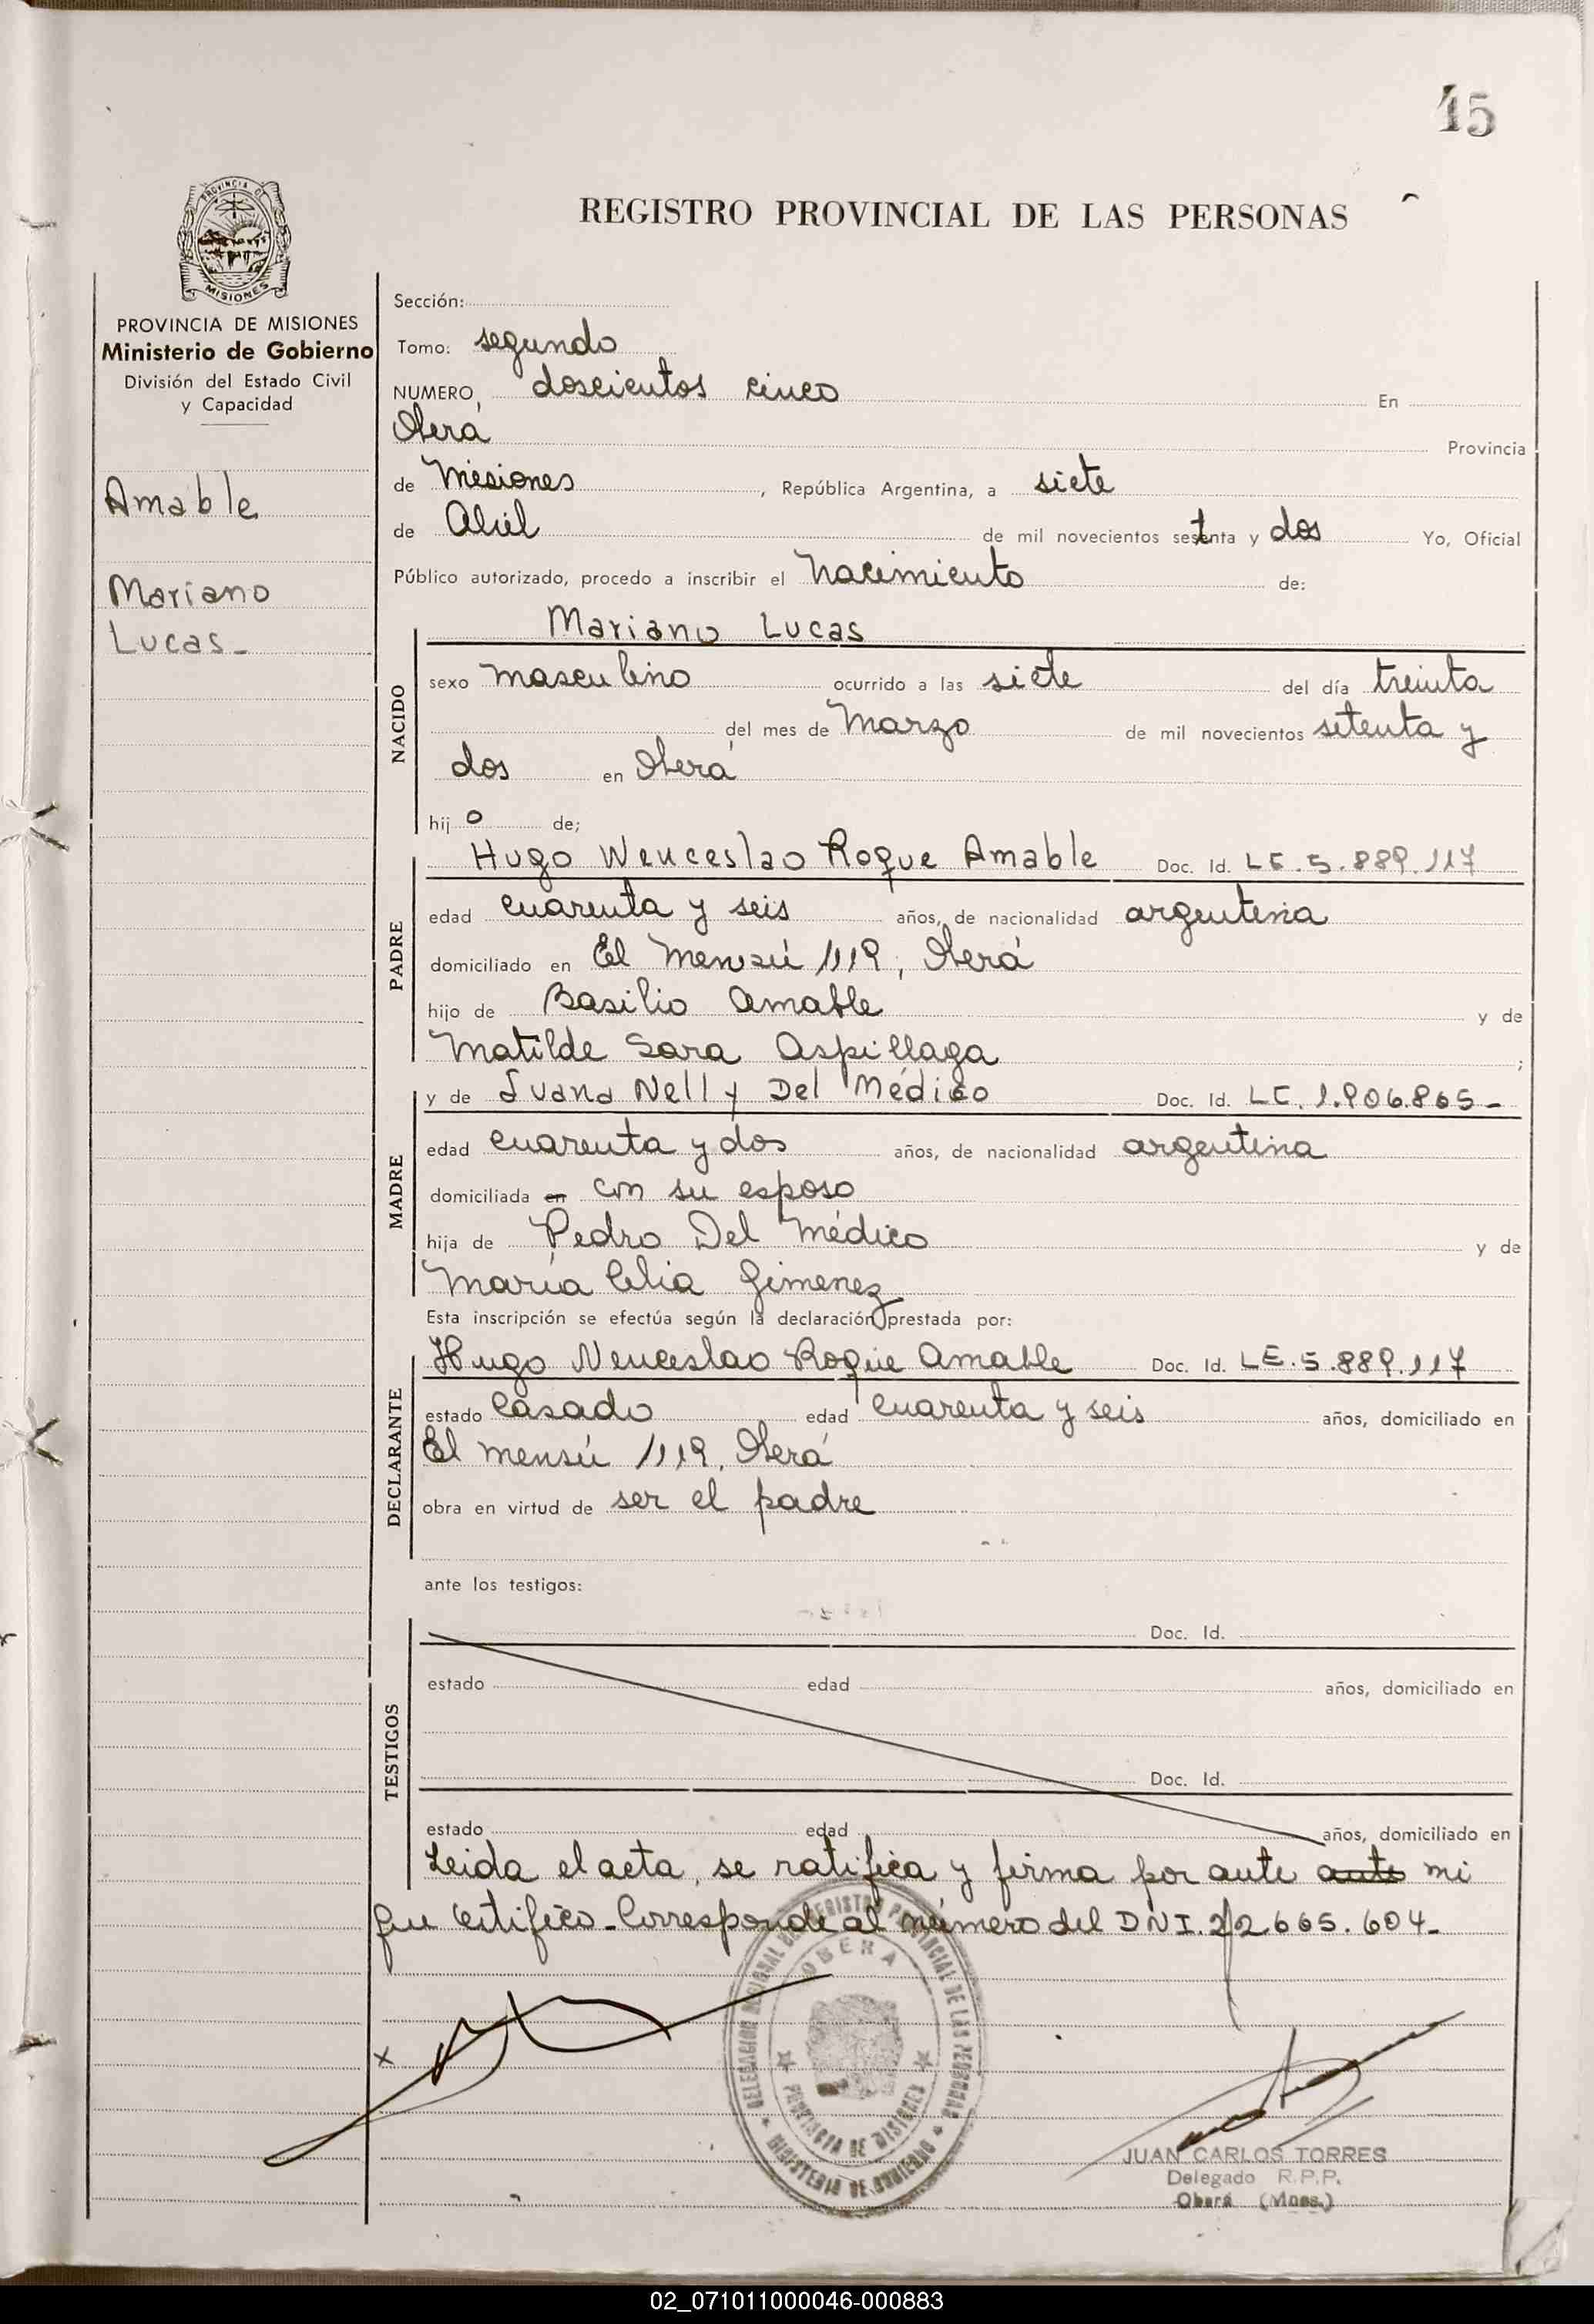 15
REGISTRO PROVINCIAL DE LAS PERSONAS
PROVINCIA DE
MISIONES
PROVINCIA DE MISIONES
Ministerio de Gobierno
División del Estado Civil
y Capacidad
Amable
Mariano
Lucas-
Sección:
Tomo: segundo
NUMERO, doscientos cinco En
Oberá Provincia
de Misiones, República Argentina, a siete
de Abril de mil novecientos setenta y dos Yo, Oficial
Público autorizado, procedo a inscribir el nacimiento de:
Mariano Lucas
NACIDO
sexo masculino ocurrido a las siete del día treinta
del mes de Marzo de mil novecientos setenta y
dos en Oberá
hijo de;
PADRE
Hugo Wenceslao Roque Amable Doc. Id. LE.5.889.117
edad cuarenta y seis años, de nacionalidad argentina
domiciliado en El Mensú 1119, Oberá
hijo de Basilio Amable y de
Matilde Sara Aspillaga ;
MADRE
y de Ivana Nelly Del Médico Doc. Id. LC. 1.906.865-
edad cuarenta y dos años, de nacionalidad argentina
domiciliada en con su esposo
hija de Pedro Del Médico y de
María Celia Gimenez
Esta inscripción se efectúa según la declaración prestada por:
DECLARANTE
Hugo Wenceslao Roque Amable Doc. Id. LE.5.889.117
estado Casado edad cuarenta y seis años, domiciliado en
El Mensú 1119, Oberá
obra en virtud de ser el padre
ante los testigos:
TESTIGOS
Doc. Id.
estado edad años, domiciliado en
Doc. Id.
estado edad años, domiciliado en
Leida el acta, se ratifica y firma por ante ante mi
que certifico-Corresponde al número del DNI. 22665.604-
x
DELEGACION REGIONAL DEL REGISTRO PROVINCIAL DE LAS PERSONAS
MINISTERIO DE GOBIERNO
OBERA
PROVINCIA DE MISIONES
JUAN CARLOS TORRES
Delegado R.P.P.
Oberá (Mnes.)
02_071011000046-000883